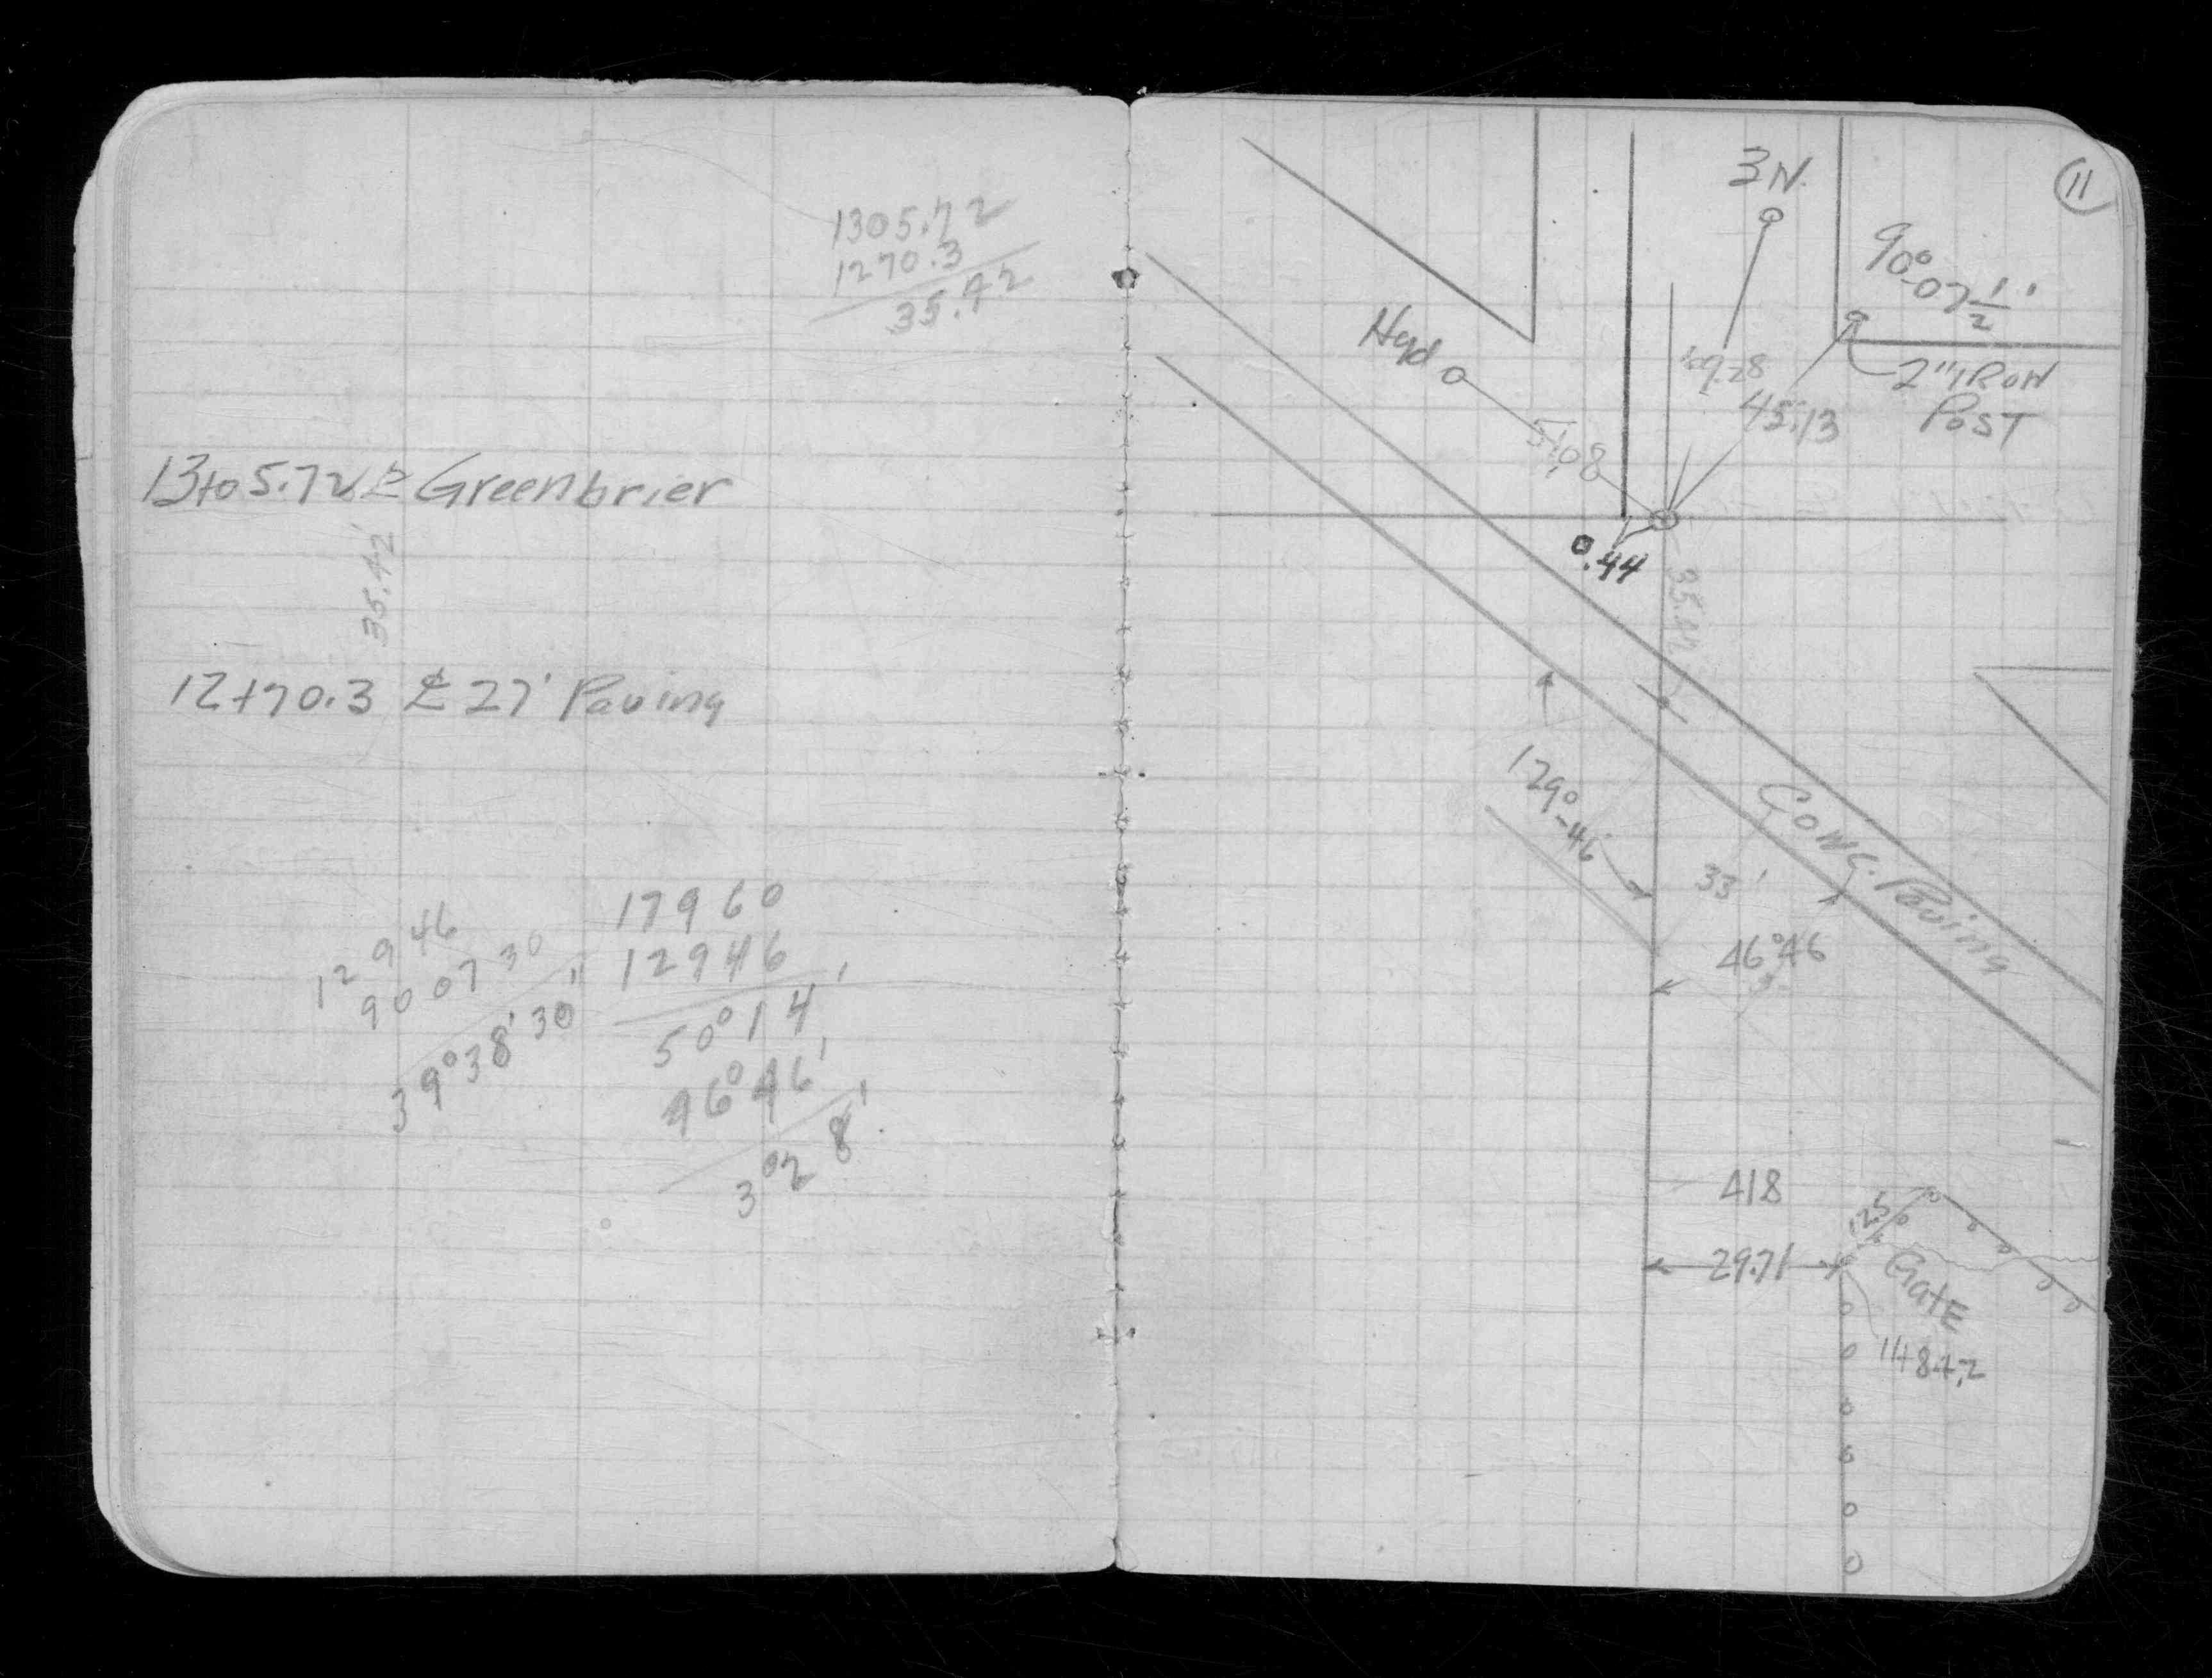 1305.72
1270.3
35.42
13+05.72 ℄ Greenbrier
35.42'
12+70.3 ℄ 27' Paving
129 46
90 07 30
39°38'30"
179 60
129 46
50°14'
46°46'
3°28'
11
3N.
90°-07 1/2'
Hyd
2" IRON
POST
45.13
51.08
0.44
129°-46'
CONC. Paving
33'
46°46
418
12.5
29.71
GatE
11+84.2